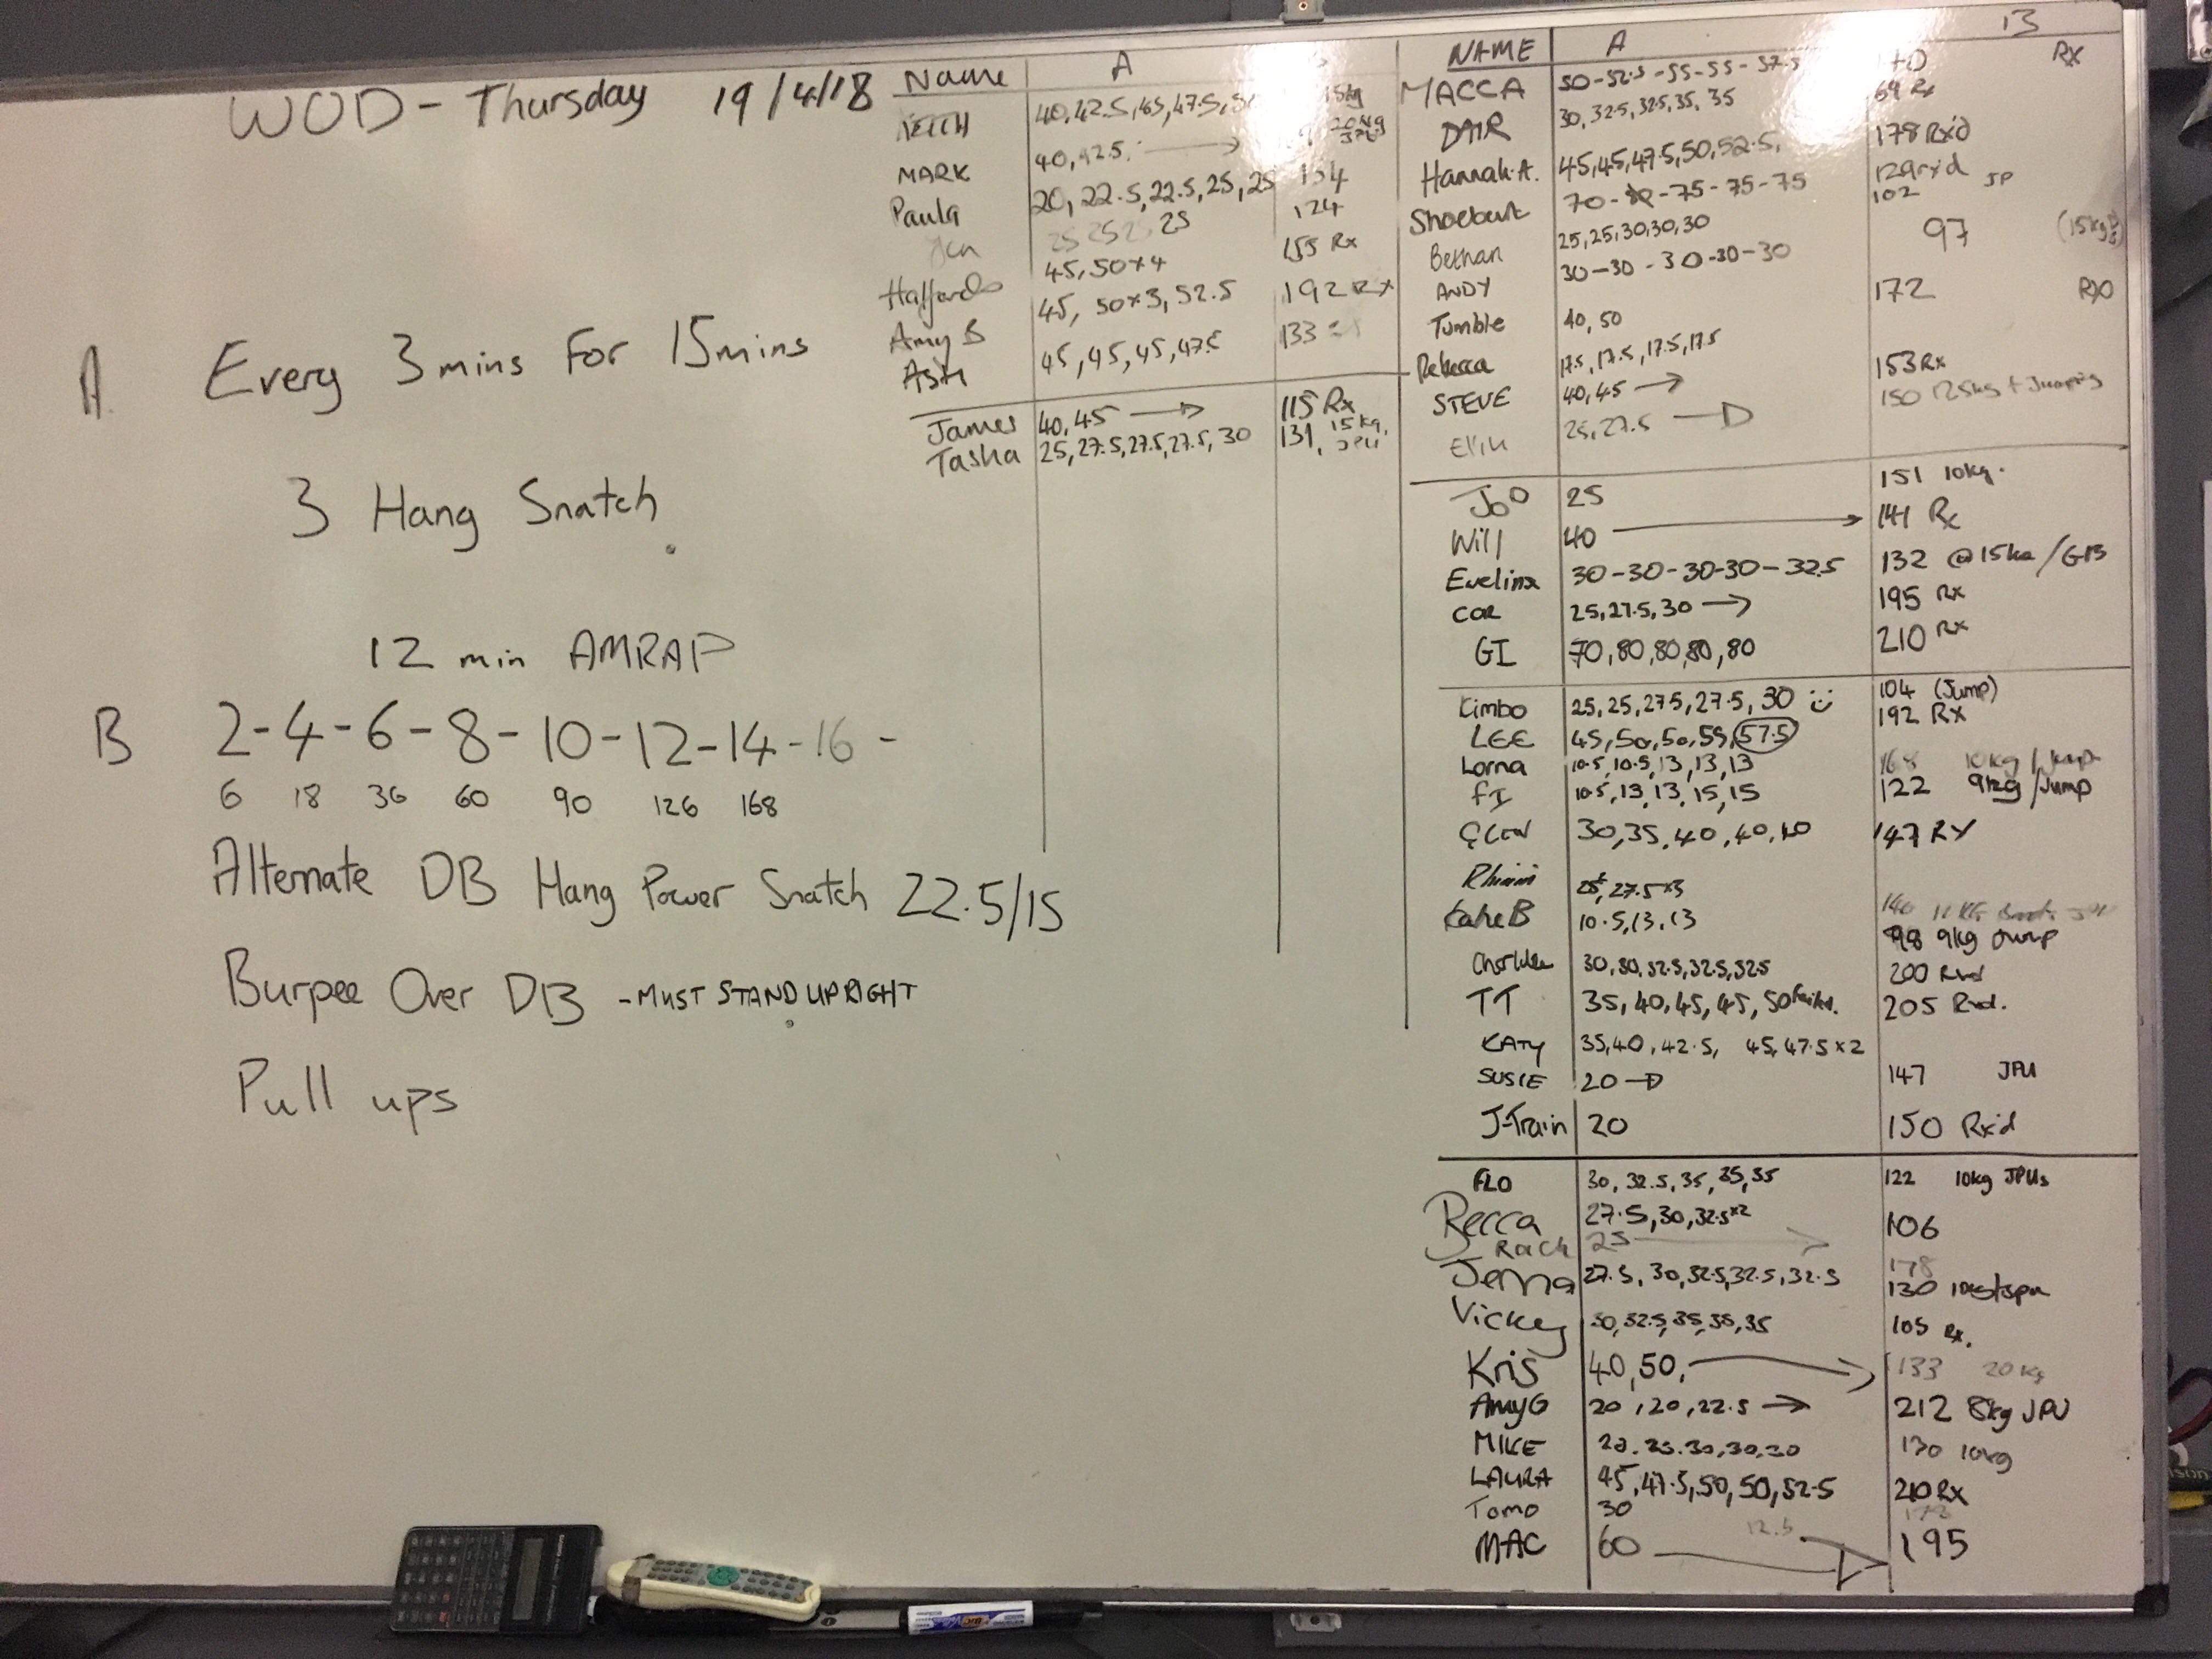 WOD - Thursday 19/4/18
A Every 3 mins For 15 mins
3 Hang Snatch
12 min AMRAP
B 2 - 4 - 6 - 8 - 10 - 12 - 14 - 16 -
6 18 36 60 90 126 168
Alternate DB Hang Power Snatch 22.5/15
Burpee Over DB - MUST STAND UPRIGHT
Pull ups
Name A
40, 42.5, 45, 47.5, 15kg
MARK 40, 42.5, →
Paula 20, 22.5, 22.5, 25, 25 134
Jen 25 25 25 25 124
45, 50x4 155 Rx
Amy B 45, 50x3, 52.5 192 Rx
Ash 45, 45, 45, 47.5 133
James 40, 45 → 115 Rx
Tasha 25, 27.5, 27.5, 27.5, 30 131, 15kg, JPU
NAME A 13
MACCA 50 - 52.5 - 55 - 55 - 57.5 Rx
DAIR 30, 32.5, 32.5, 35, 35 69 Rx
Hannah A. 45, 45, 47.5, 50, 52.5, 178 Rx'd
70 - 75 - 75 - 75 129 rxd
Bethan 25, 25, 30, 30, 30 102 JP
ANDY 30 - 30 - 30 - 30 - 30 97 (15kg
Tumble 40, 50 172 RX
Rebecca 17.5, 17.5, 17.5, 17.5
STEVE 40, 45 → 153 Rx
25, 27.5 → 150
Joo 25 151 10kg.
Will 40 → 141 Rx
Evelina 30 - 30 - 30 - 30 - 32.5 132 @ 15kg /GB
COR 25, 27.5, 30 → 195 Rx
GI 70, 80, 80, 80, 80 210 Rx
Kimbo 25, 25, 27.5, 27.5, 30 104 (Jump)
LEE 45, 50, 50, 55, 57.5 192 RX
Lorna 10.5, 10.5, 13, 13, 13 168 10kg / Jump
FI 10.5, 13, 13, 15, 15 122 9kg /Jump
30, 35, 40, 40, 40 147 RX
25, 27.5 x3
10.5, 13, 13 98 9kg Jump
30, 30, 32.5, 32.5, 32.5 200 Rxd
TT 35, 40, 45, 45, 50 failed. 205 Rxd.
KATY 35, 40, 42.5, 45, 47.5 x 2
SUSIE 20 → 147 JPU
J-Train 20 150 Rx'd
FLO 30, 32.5, 35, 35, 35 122 10kg JPUs
Recca 27.5, 30, 32.5 x2 106
Rach 25 → 178
Jenna 27.5, 30, 32.5, 32.5, 32.5 130
Vickey 30, 32.5, 35, 35, 35 105 Rx.
Kris 40, 50, → 133 20kg
Amy G 20, 20, 22.5 → 212 8kg JPU
MIKE 130 10kg
LAURA 45, 47.5, 50, 50, 52.5 210 Rx
Tomo 30
MAC 60 → 195